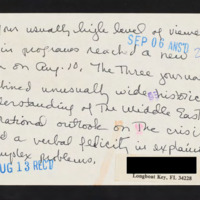 your usually high level of viewer
SEP 06 ANS'D
in programs reached a new
on Aug. 10. The Three journal
bined unusually wide historic
derstanding of the Middle East
rational outlook on the crisis
d a verbal felicity in explain
mplex problems.
UG 13 REC'D
Longboat Key, FL 34228